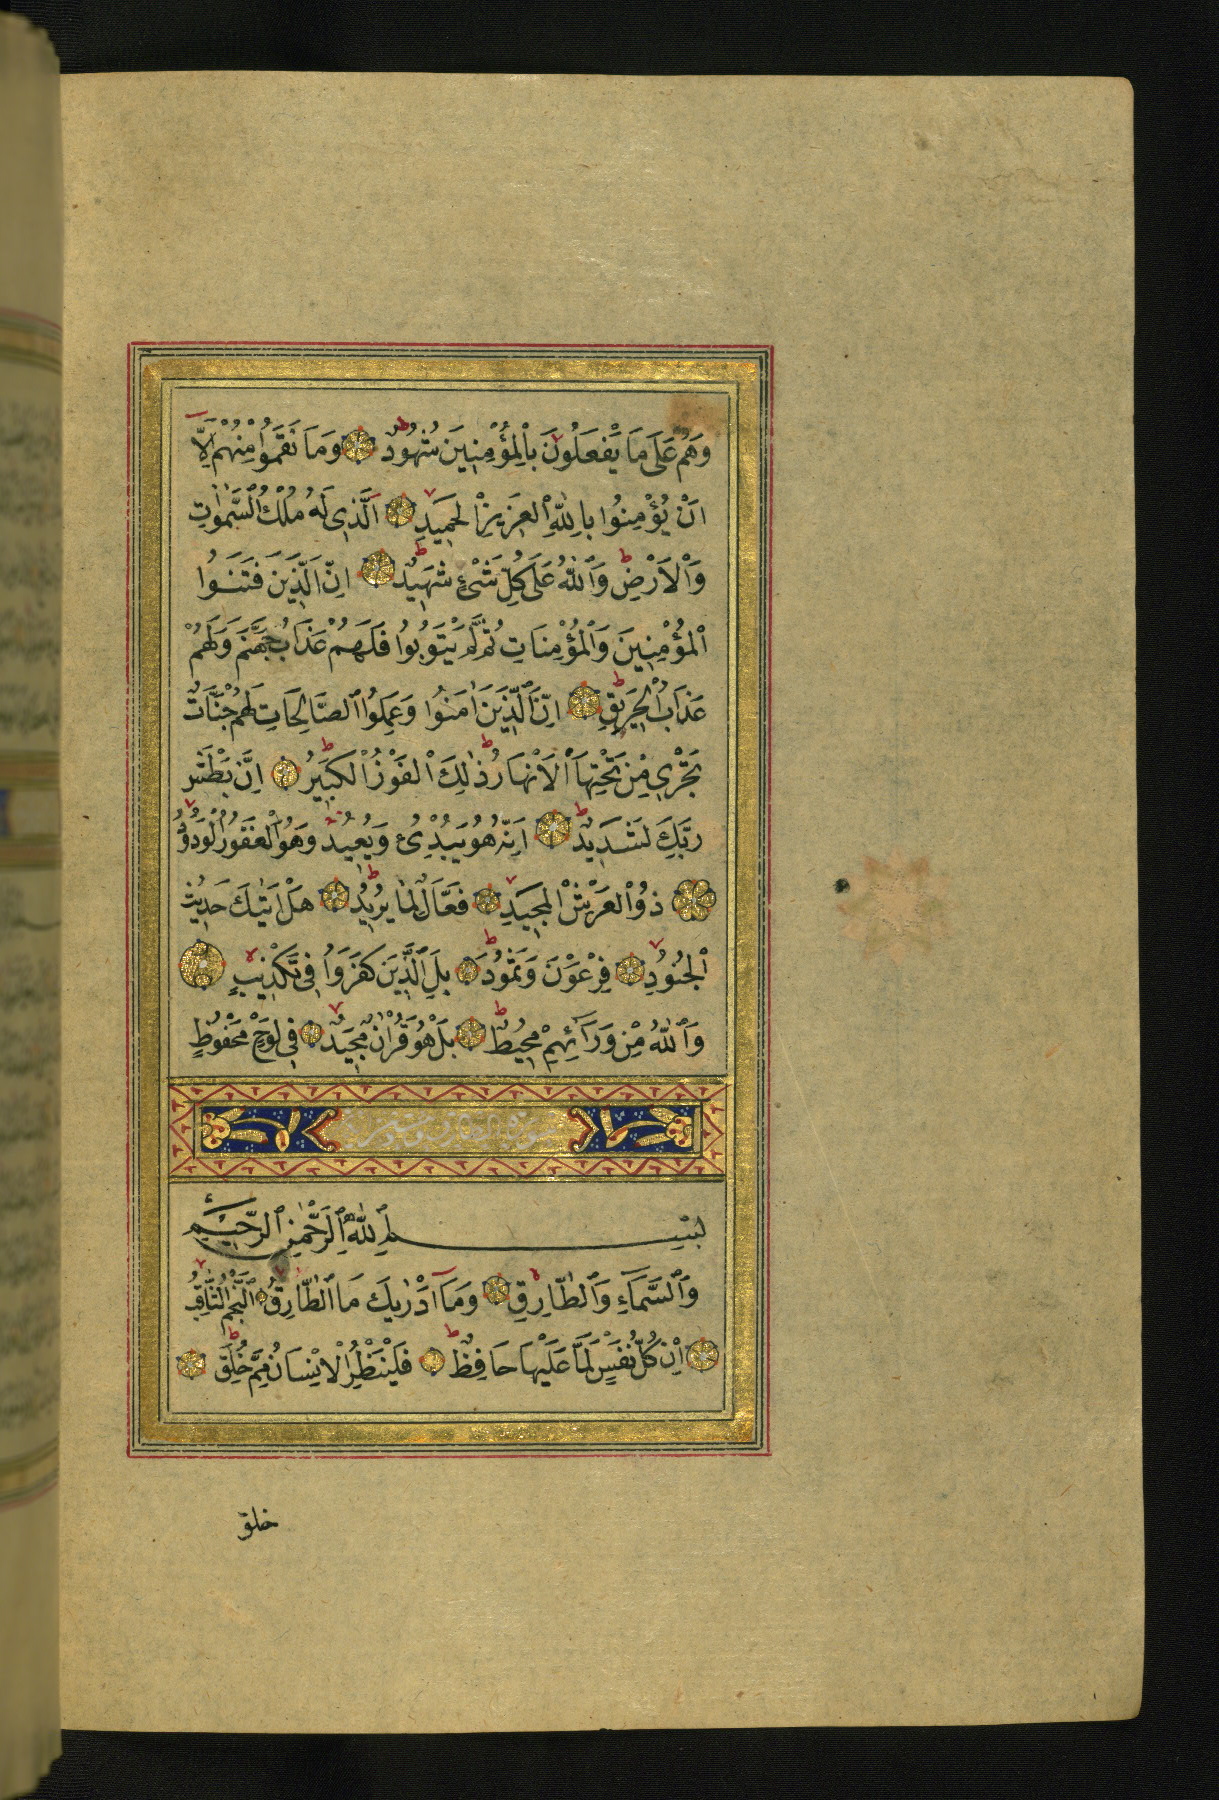 وَهُمْ عَلَى مَا يَفْعَلُونَ بِالْمُؤْمِنِينَ شُهُودٌ وَمَا نَقَمُوا مِنْهُمْ اِلَّٓا
اَنْ يُؤْمِنُوا بِاللّٰهِ الْعَزِيزِ الْحَمِيدِ اَلَّذِى لَهُ مُلْكُ السَّمٰوَاتِ
وَالْاَرْضِ وَاللّٰهُ عَلَى كُلِّ شَىْءٍ شَهِيدٌ اِنَّ الَّذِينَ فَتَنُوا
الْمُؤْمِنِينَ وَالْمُؤْمِنَاتِ ثُمَّ لَمْ يَتُوبُوا فَلَهُمْ عَذَابُ جَهَنَّمَ وَلَهُمْ
عَذَابُ الْحَرِيقِ اِنَّ الَّذِينَ اٰمَنُوا وَعَمِلُوا الصَّالِحَاتِ لَهُمْ جَنَّاتٌ
تَجْرِى مِنْ تَحْتِهَا الْاَنْهَارُ ذٰلِكَ الْفَوْزُ الْكَبِيرُ اِنَّ بَطْشَ
رَبِّكَ لَشَدِيدٌ اِنَّهُ هُوَ يُبْدِئُ وَيُعِيدُ وَهُوَ الْغَفُورُ الْوَدُودُ
ذُو الْعَرْشِ الْمَجِيدِ فَعَّالٌ لِمَا يُرِيدُ هَلْ اَتٰيكَ حَدِيثُ
الْجُنُودِ فِرْعَوْنَ وَثَمُودَ بَلِ الَّذِينَ كَفَرُوا فِى تَكْذِيبٍ
وَاللّٰهُ مِنْ وَرَٓائِهِمْ مُحِيطٌ بَلْ هُوَ قُرْاٰنٌ مَجِيدٌ فِى لَوْحٍ مَحْفُوظٍ
بِسْمِ اللّٰهِ الرَّحْمٰنِ الرَّحِيمِ
وَالسَّمَٓاءِ وَالطَّارِقِ وَمَٓا اَدْرٰيكَ مَا الطَّارِقُ اَلنَّجْمُ الثَّاقِبُ
اِنْ كُلُّ نَفْسٍ لَمَّا عَلَيْهَا حَافِظٌ فَلْيَنْظُرِ الْاِنْسَانُ مِمَّ خُلِقَ
خلق